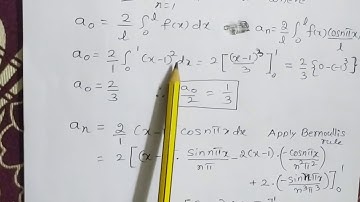 where
a₀ = 2/l ∫₀ˡ f(x) dx aₙ = 2/l ∫₀ˡ f(x) cosnπx
a₀ = 2/1 ∫₀¹ (x-1)² dx = 2 [(x-1)³/3]₀¹ = 2/3 {0-(-1)³}
a₀ = 2/3 ∴ a₀/2 = 1/3
aₙ = 2/1 (x-1) cosnπx dx Apply Bernoullis rule
= 2 [(x-1)· sinnπx/nπ - 2(x-1)·(-cosnπx/n²π²)
+ 2·(-sinnπx/n³π³)]₀¹